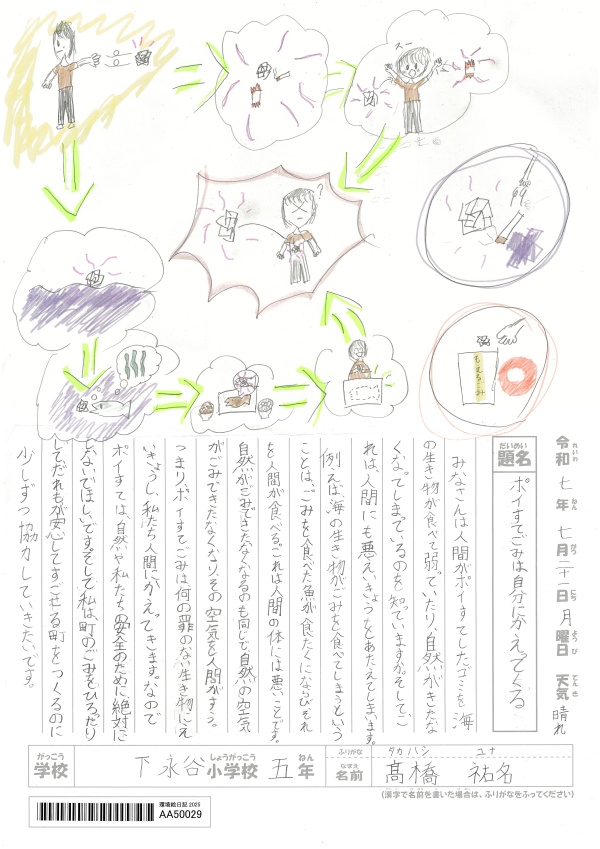 スー
?
もえるごみ
令和七年七月二十一日月曜日 天気 晴れ
れいわ ねん がつ にち ようび てんき
題名 ポイすてごみは自分にかえってくる
だいめい
みなさんは人間がポイすてしたゴミを海
の生き物が食べて弱っていたり、自然がきたな
くなってしまでいるのを知っていますか。そして、こ
れは、人間にも悪えいきょうをあたえてしまいます。
例えば海の生き物がごみを食べてしまうという
ことは、ごみを食べた魚が食たくにならびそれ
を人間が食べる。これは人間の体には悪いことです。
自然がごみできたなくなるのも同じで自然の空気
がごみできたなくなり、その空気を人間がすう。
つまり、ポイすてごみは何の罪のない生き物にえ
いきょうし、私たち人間にかえってきます。なので
ポイすては、自然や私たちの安全のために、絶対に
しないでほしいです。そして私は、町のごみをひろったり
してだれもが安心してすごせる町をつくるのに
少しずつ協力していきたいです。
がっこう しょうがっこう ねん ふりがな タカハシ ユナ
学校 下永谷小学校 五年 なまえ 名前 髙橋 祐名
(漢字で名前を書いた場合は、ふりがなをふってください)
環境絵日記 2025
AA50029